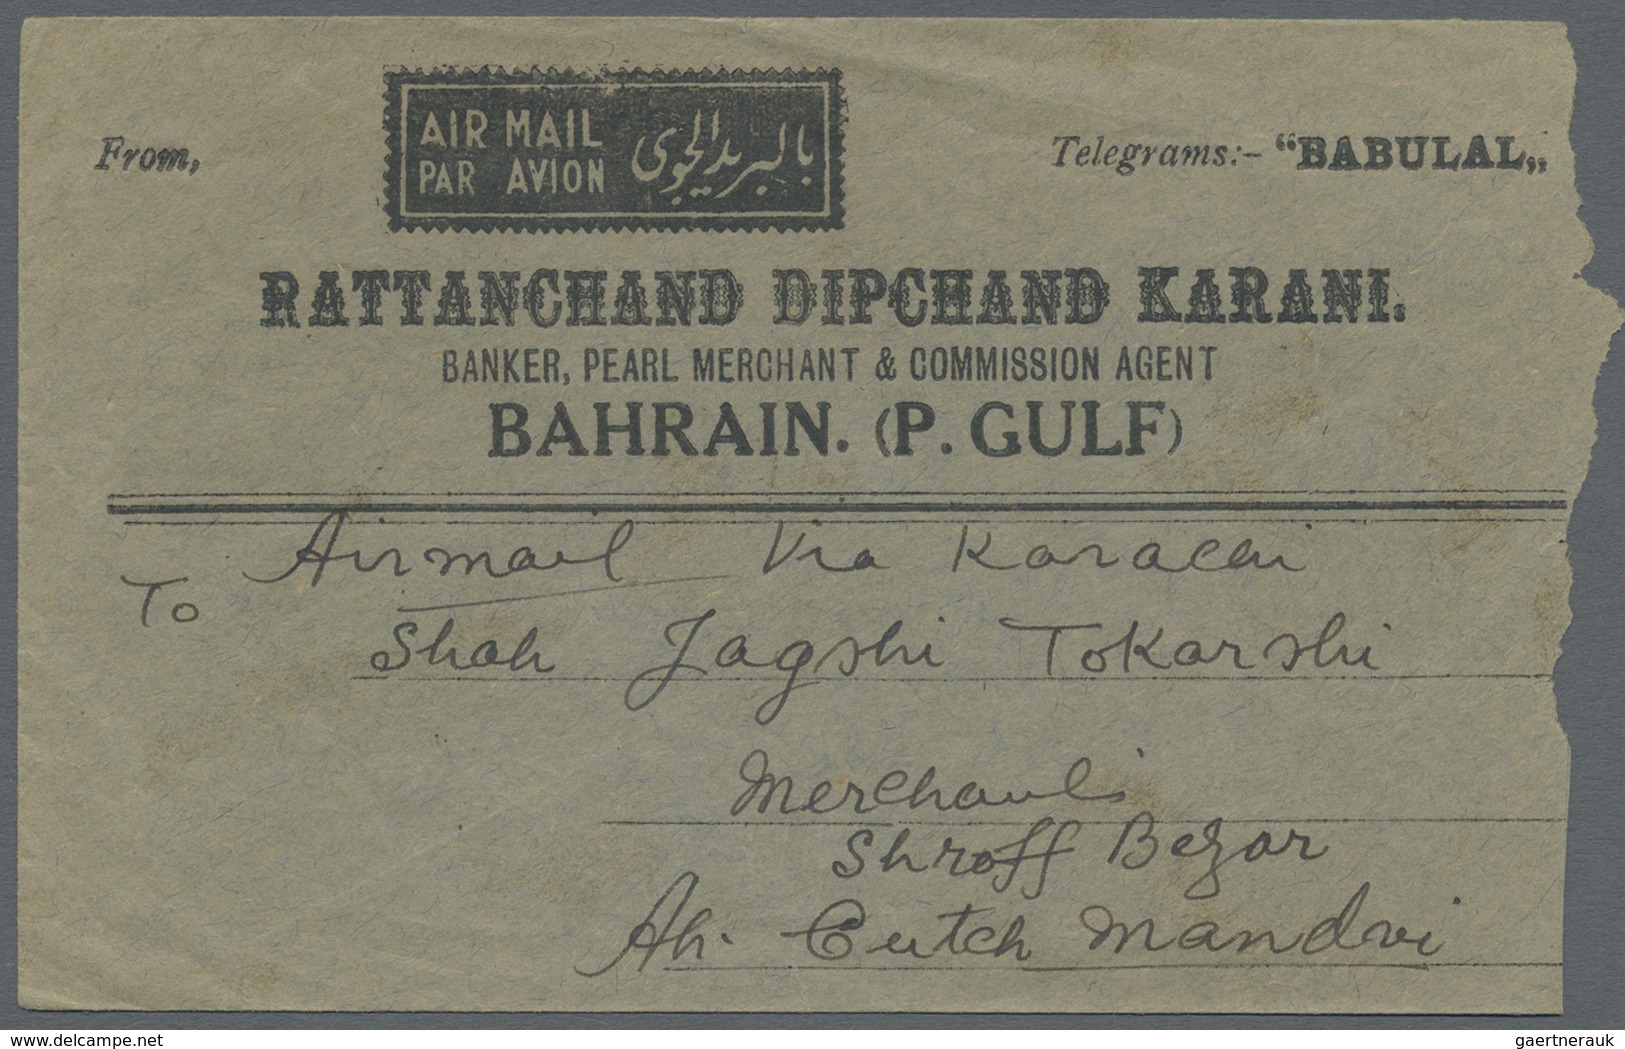 From,
AIR MAIL
PAR AVION
بالبريد الجوى
Telegrams:- "BABULAL„
RATTANCHAND DIPCHAND KARANI.
BANKER, PEARL MERCHANT & COMMISSION AGENT
BAHRAIN. (P. GULF)
Airmail Via Karachi
To
Shah Jagshi Tokarshi
Merchants
Shroff Bezar
At. Cutch Mandvi
www.delcampe.net
gaertnerauk